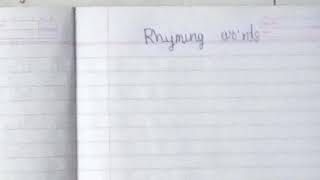 Rhyming words